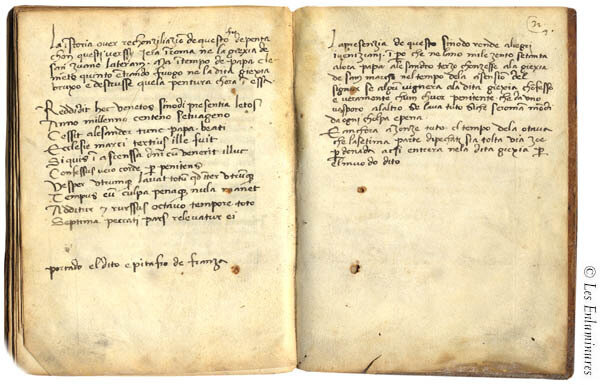 La istoria over rechonziliazio de questo fu depenta
chon questi verssi Jera in roma ne la giexia de
san zuane lateran. Ma i tempo de papa cle
mento quinto etando fuogo ne la dita giexia
bruxo e destusse quela pentura chora e esse
Reddidit her venetos sinodi presentia letos
Anno milleno centeno setuageno
Cesset alesander tunc papa beati
Eclesie marci tertius ille fuit
Siquis i ascenssa dni cu venerit illuc
Confessus vero corde penitens
Vesper utrumq laval totu
Tempus eu culpa penaq nula manet
Additur rurssus octavo tempore toto
Septima peccati pars relevatur ei
portado el dito epitafio de franza
32
La presenzia de questo sinodo rende alegri
i veniziani. i po che ne lano mile zento setanta
alora papa alesandro terzo chonzesse ala giexia
de san marcho nel tempo dela asensio del
signor se algun vignera ala dita giexia chofesse
e veramente chun chuor penitente cha da uno
vesporo al altro se lava tuto siche seroma modi
de ogni cholpa e pena
E anchora azonze tuto el tempo dela otava
che la setima parte di pechati sia tolta via zoe
perdonada a chi entrera nela dita giexia p
El muodo dito
© Les Enluminures